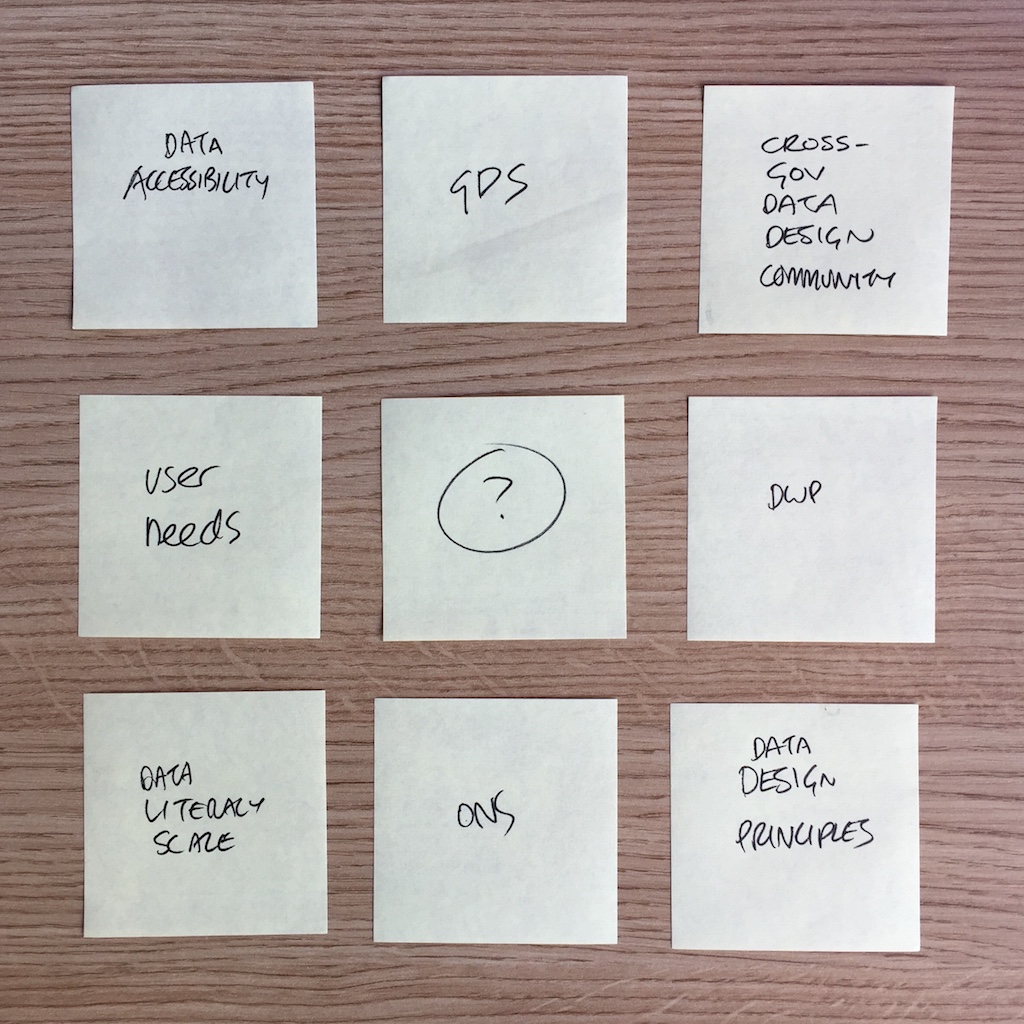 DATA
ACCESSIBILITY
GDS
CROSS-
GOV
DATA
DESIGN
COMMUNITY
user
needs
?
DWP
DATA
LITERACY
SCALE
ONS
DATA
DESIGN
PRINCIPLES